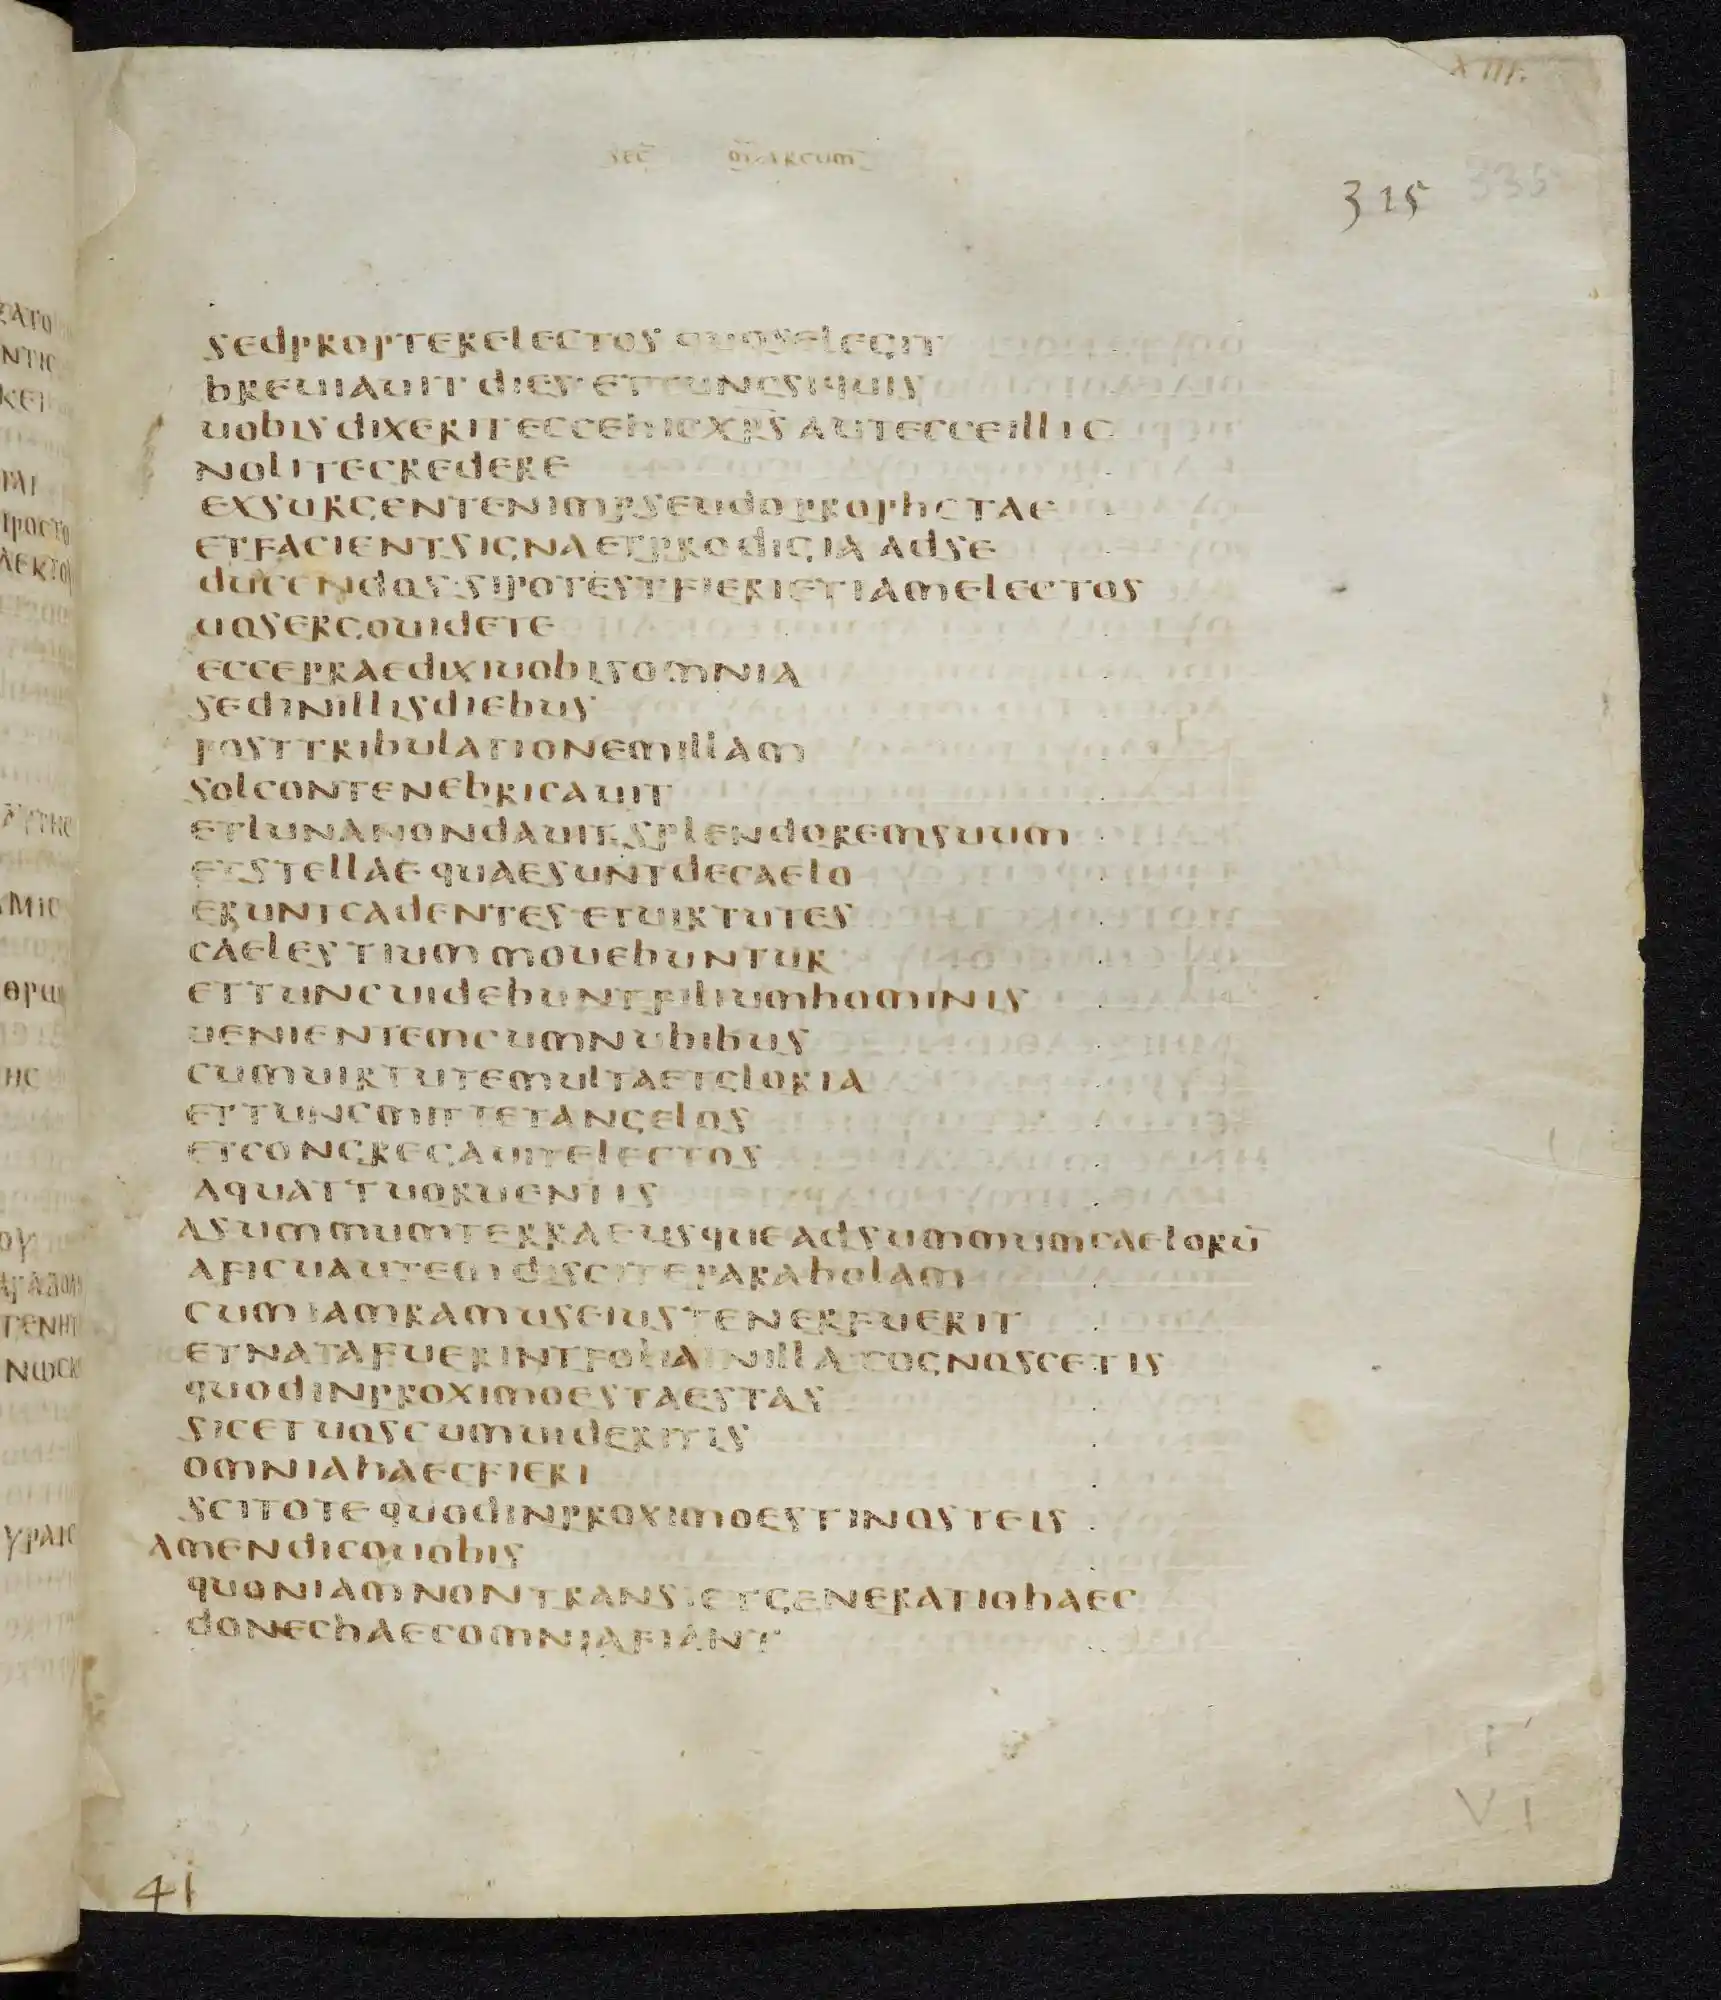 XIII.
sec̅ marcum̅
315 335
sedpropterelectos quoselegit
breuiauit dies ettuncsiquis
uobisdixeriteccehicxp̅s auteccceillic
nolitecredere
exsurgentenimpseudoprophetae
etfacientsignaetprodigia adse
ducendos·sipotestfierietiamelectos
uosergouidete
ecceepraedixiuobisomnia
sedinillisdiebus
posttribulationemillam
solcontenebricauit
etlunanondauitsplendoremsuum
etstellae quaesuntdecaelo
eruntcadentes·etuirtutes
caelestiummouebuntur
ettuncuidebuntfiliumhominis
uenientemcumnubibus
cumuirtutemultaetgloria
ettuncmittetangelos
etcongregauitelectos
aquattuoruentis
asummumterraeusqueadsummumcaeloru̅
aficuautemdisciteparabolam
cumiamramuseiustenerfuerit
etnatafuerintfoliainilla cognoscetis
quodinproximoestaestas
sicetuoscumuideritis
omniahaecfieri
scitotequodinproximoestinosteis
amendicouobis
quoniamnontransietgeneratiohaec
donechaecomniafiant
VI
41